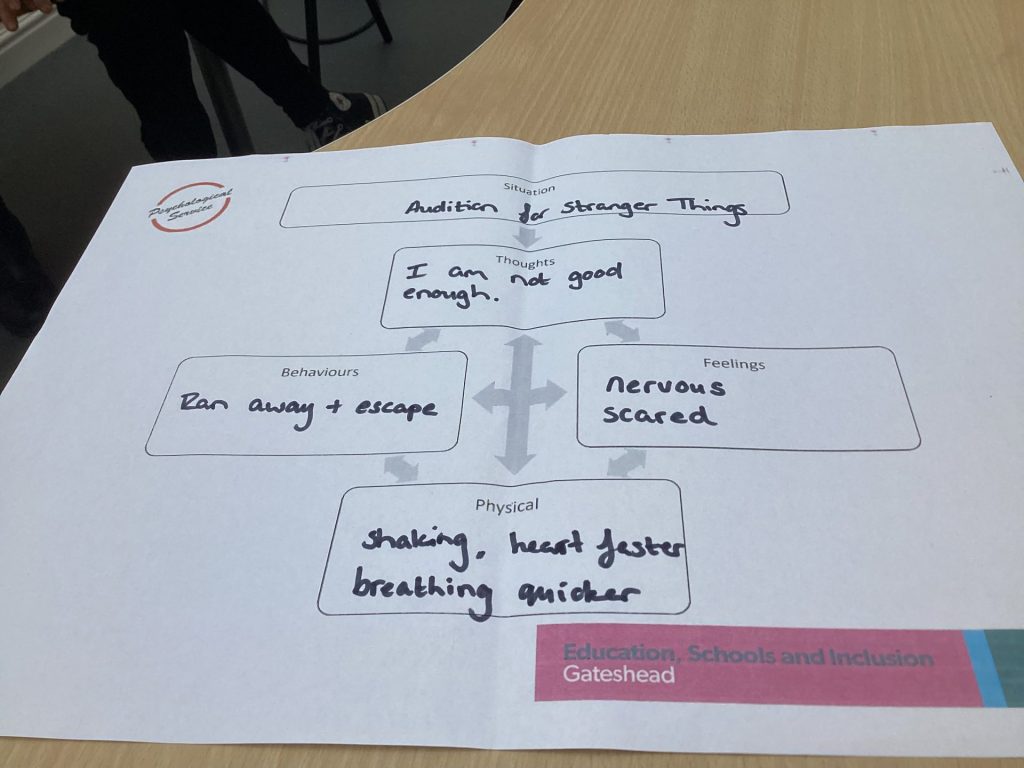 Psychological
Service
Situation
Audition for Stranger Things
Thoughts
I am not good
enough.
Behaviours
Ran away + escape
Feelings
nervous
scared
Physical
shaking, heart faster
breathing quicker
Education, Schools and Inclusion
Gateshead